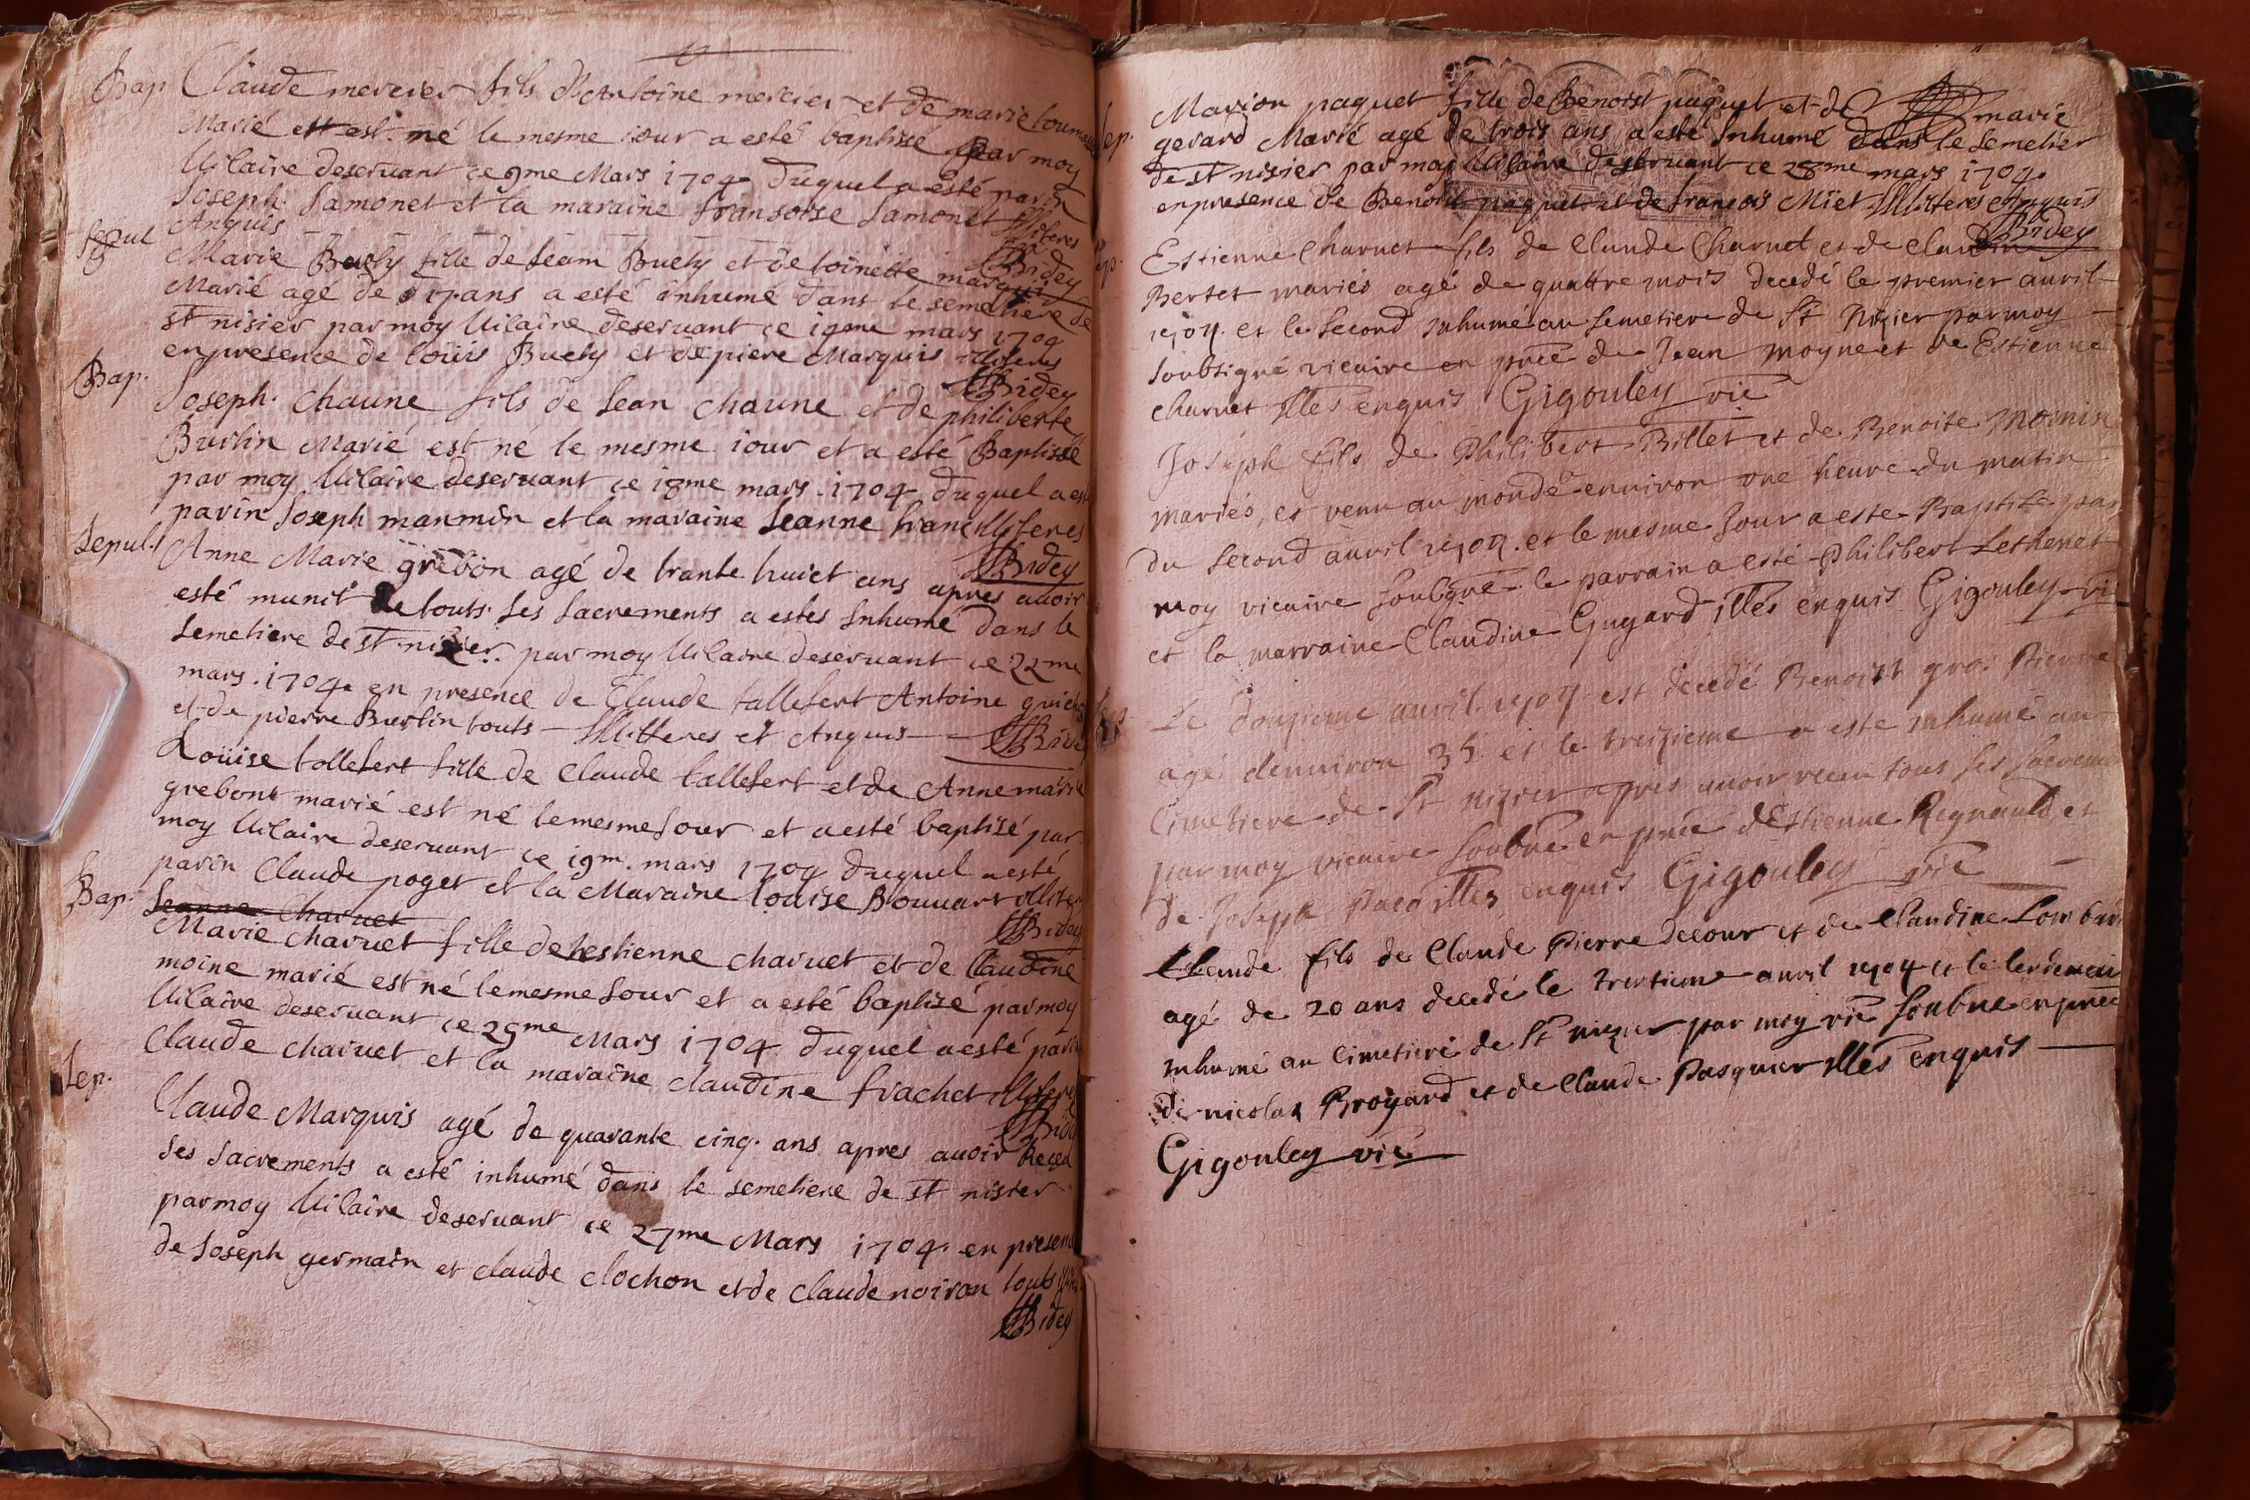 Bap Claude mercier fils d'Antoine mercier et de marie
Marié est né le mesme iour a esté baptissé par moy
Uicaire deseruant ce 9me Mars 1704 duquel a esté parin
Joseph Lamonet et la maraine fransoise Lamonet Illiteres
Anquis
Bidey
Sepul Marie Buely fille de Jean Buely et de toinette marquis
Marié agé de 17 ans a esté inhumé dans le semetiere de
st nisier par moy Uicaire deseruant ce 12me mars 1704
en presence de loüis Buely et de piere Marquis illiteres
Bidey
Bap. Joseph Chaune fils de Jean Chaune et de philiberte
Burtin Marié est né le mesme iour et a esté Baptissé
par moy Uicaire deseruant ce 18me mars 1704 duquel a esté
parin Joseph manmin et la maraine Jeanne franc Illiteres
Bidey
Sepul. Anne Marie grebon agé de trante huict ans apres auoir
esté munit de touts ses sacrements a estes Inhumé dans le
semetiere de st nisier par moy Uicaire deseruant ce 22me
mars 1704 en presence de Claude tallefert Antoine
et de pierre Burtin touts Illitteres et Anquis
Bidey
Loüise tallefert fille de Claude tallefert et de Anne marie
grebont marié est né le mesme Jour et a esté baptizé par
moy Uicaire deseruant ce 19m mars 1704 duquel a esté
parin Claude poget et la Maraine loüise Bouuart
Bidey
Jeanne Charuet
Bap. Marie Charuet fille de hestienne charuet et de Claudine
moine marié est né le mesme Jour et a esté baptizé par moy
Uicaire deseruant ce 25me Mars 1704 duquel a esté parin
Claude charuet et la maraine claudine frachet
Bidey
Sep. Claude Marquis agé de quarante cinq ans apres auoir Receu
ses sacrements a esté inhumé dans le semetiere de st nisier
par moy Uicaire deseruant ce 27me Mars 1704 en presence
de Joseph germain et claude clochon et de claude noiron touts
Bidey
Sep. Marion paquet fille de Benoist paquet et de marie
gerard Marié agé de trois ans a esté Inhumé dans le semetier
de st nisier par moy Uicaire deseruant ce 28me mars 1704
en presence de Benoist paquet et de francois Miet Illiteres Anquis
Bidey
Estienne Charuet fils de Claude Charuet et de Claudine
Bertet mariés agé de quattre mois decedé le premier auril
1704 et le second inhumé au semetiere de St Nizier par moy
soubsigné vicaire en pnce de Jean moyne et de Estienne
charuet Illes enquis Gigouley vic
Joseph fils de Philibert Billet et de Benoite Mornin
mariés, et venu au monde enuiron vne heure du matin
du second auril 1704 et le mesme Jour a este Baptizé par
moy vicaire soubgné le parrain a esté Philibert Lethenet
et la marraine Claudine Guyard illes enquis Gigouley vic
Le douzieme auril 1704 est decedé Benoist gros Pierre
agé denuiron 35 et le treizieme a este inhumé au
Cimetiere de St nizier apres auoir receu tous ses sacremens
par moy vicaire soubné en pnce d'Estienne Regnauld et
de Joseph illes enquis Gigouley vic
Claude fils de Claude Pierre decour et de Claudine
agé de 20 ans decedé le auril 1704 et le lendemain
inhumé au Cimetiere de St nizier par moy vic soubné en pnce
de nicolas Broyard et de Claude Pasquier illes enquis
Gigouley vic